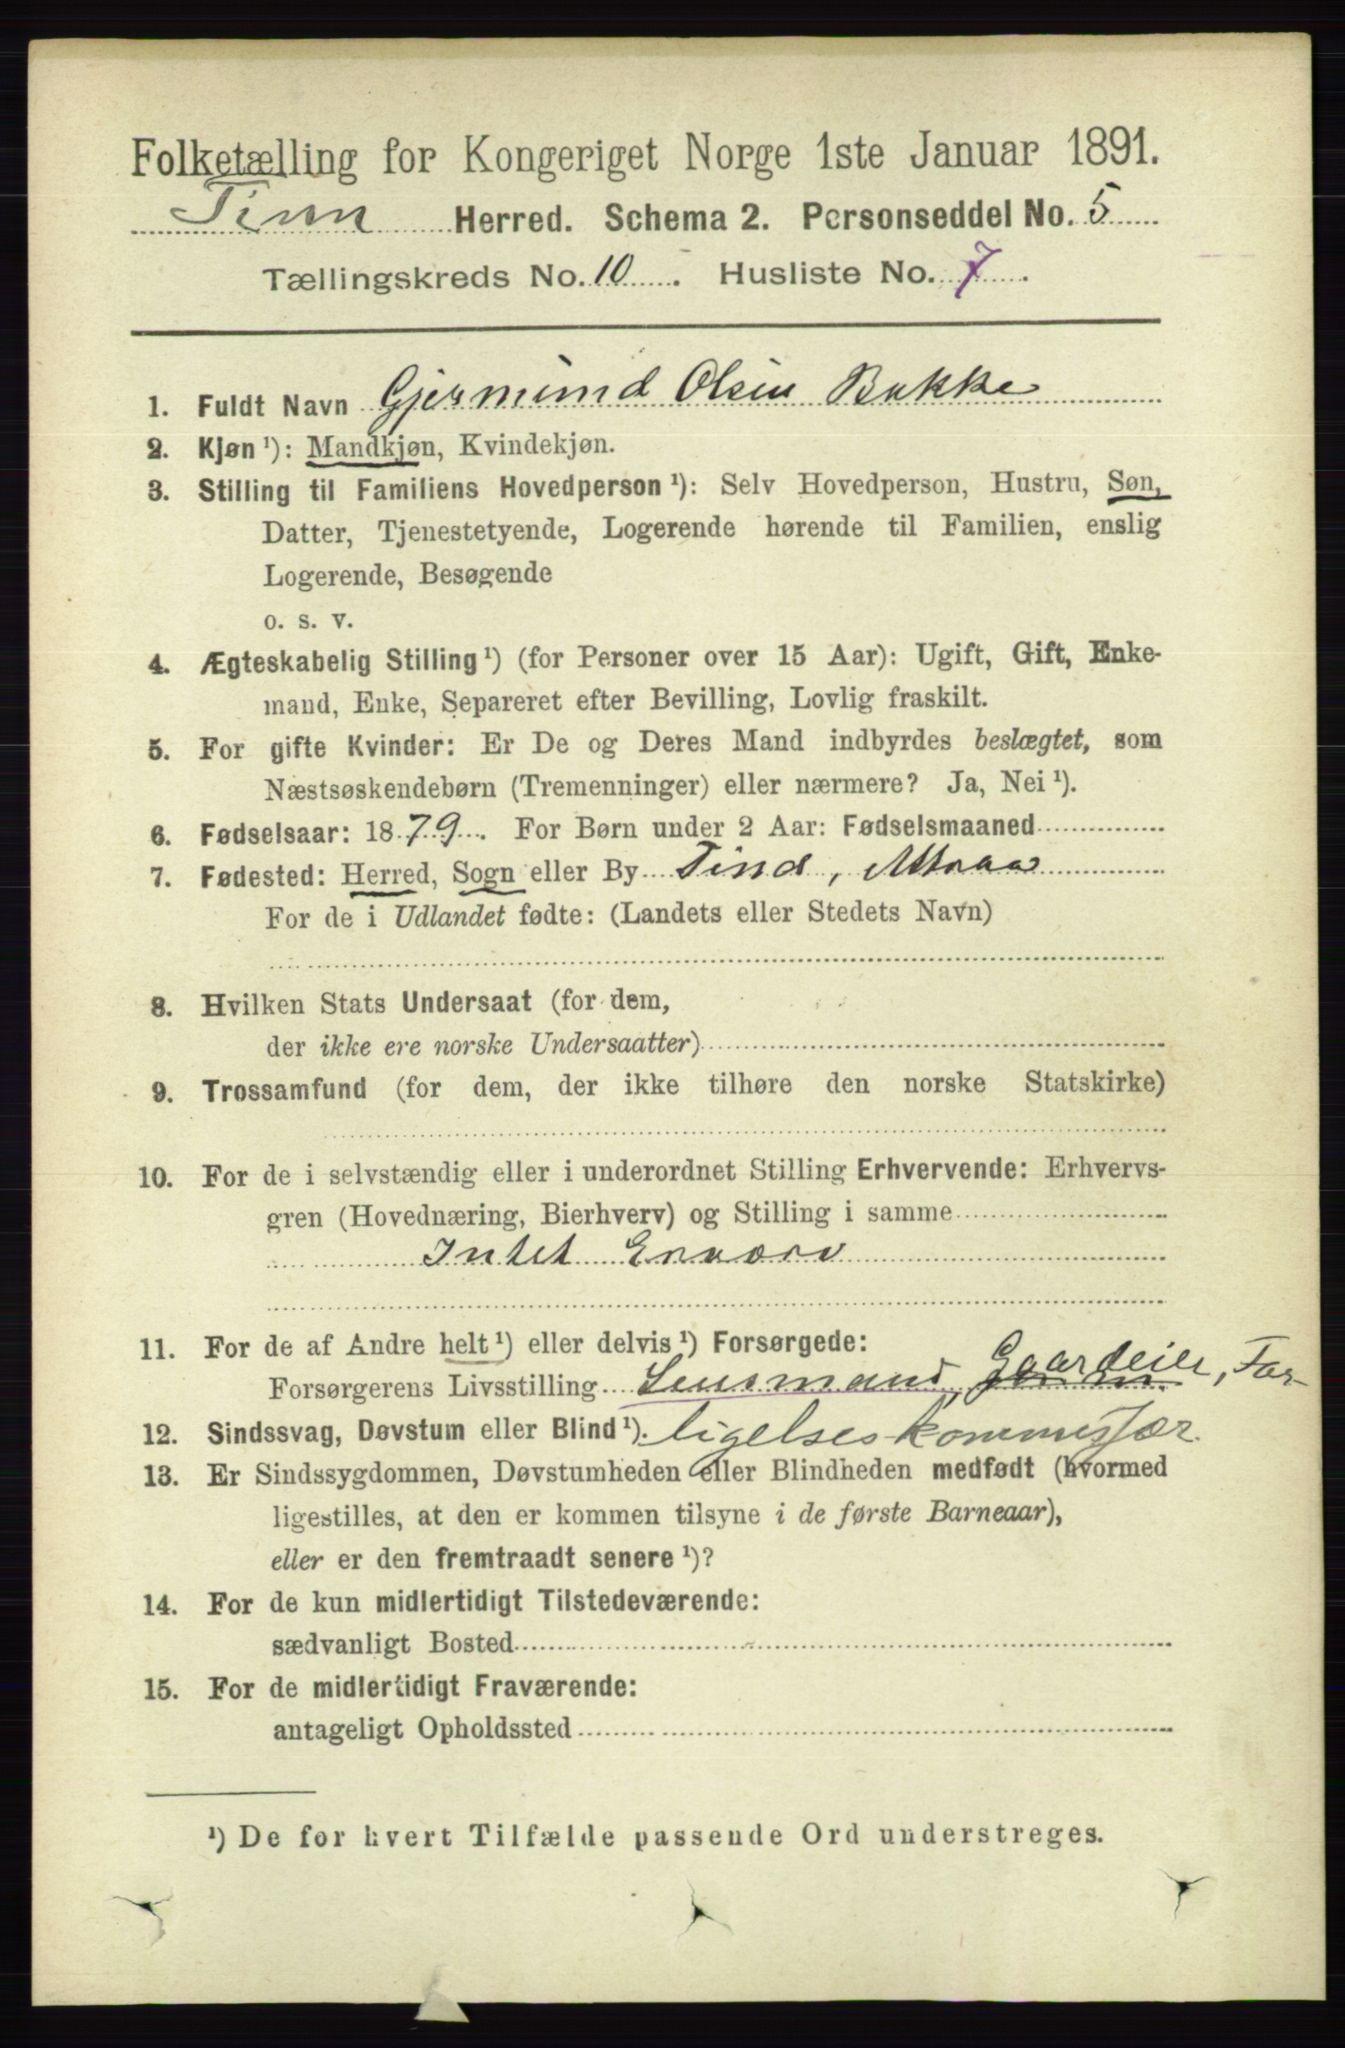 Folketælling for Kongeriget Norge 1ste Januar 1891.
Tinn Herred. Schema 2. Personseddel No. 5
Tællingskreds No. 10. Husliste No. 7.
1. Fuldt Navn Gjermund Olsen Bakke
2. Kjøn ¹): Mandkjøn, Kvindekjøn.
3. Stilling til Familiens Hovedperson ¹): Selv Hovedperson, Hustru, Søn,
Datter, Tjenestetyende, Logerende hørende til Familien, enslig
Logerende, Besøgende
o. s. v.
4. Ægteskabelig Stilling ¹) (for Personer over 15 Aar): Ugift, Gift, Enke-
mand, Enke, Separeret efter Bevilling, Lovlig fraskilt.
5. For gifte Kvinder: Er De og Deres Mand indbyrdes beslægtet, som
Næstsøskendebørn (Tremenninger) eller nærmere? Ja, Nei ¹).
6. Fødselsaar: 1879. For Børn under 2 Aar: Fødselsmaaned
7. Fødested: Herred, Sogn eller By Tind, Attraa
For de i Udlandet fødte: (Landets eller Stedets Navn)
8. Hvilken Stats Undersaat (for dem,
der ikke ere norske Undersaatter)
9. Trossamfund (for dem, der ikke tilhøre den norske Statskirke)
10. For de i selvstændig eller i underordnet Stilling Erhvervende: Erhvervs-
gren (Hovednæring, Bierhverv) og Stilling i samme
Intet Erværv
11. For de af Andre helt ¹) eller delvis ¹) Forsørgede:
Forsørgerens Livsstilling Lensmand, Gaardeier, For-
12. Sindssvag, Døvstum eller Blind ¹). ligelseskommissær.
13. Er Sindssygdommen, Døvstumheden eller Blindheden medfødt (hvormed
ligestilles, at den er kommen tilsyne i de første Barneaar),
eller er den fremtraadt senere ¹)?
14. For de kun midlertidigt Tilstedeværende:
sædvanligt Bosted
15. For de midlertidigt Fraværende:
antageligt Opholdssted
¹) De for hvert Tilfælde passende Ord understreges.